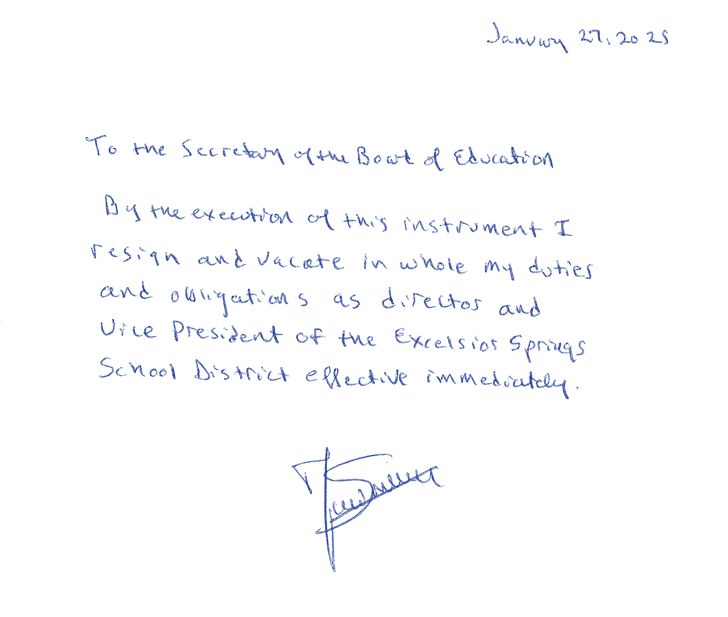 January 27, 2025
To the Secretary of the Board of Education
By the execution of this instrument I
resign and vacate in whole my duties
and obligations as director and
Vice President of the Excelsior Springs
School District effective immediately.